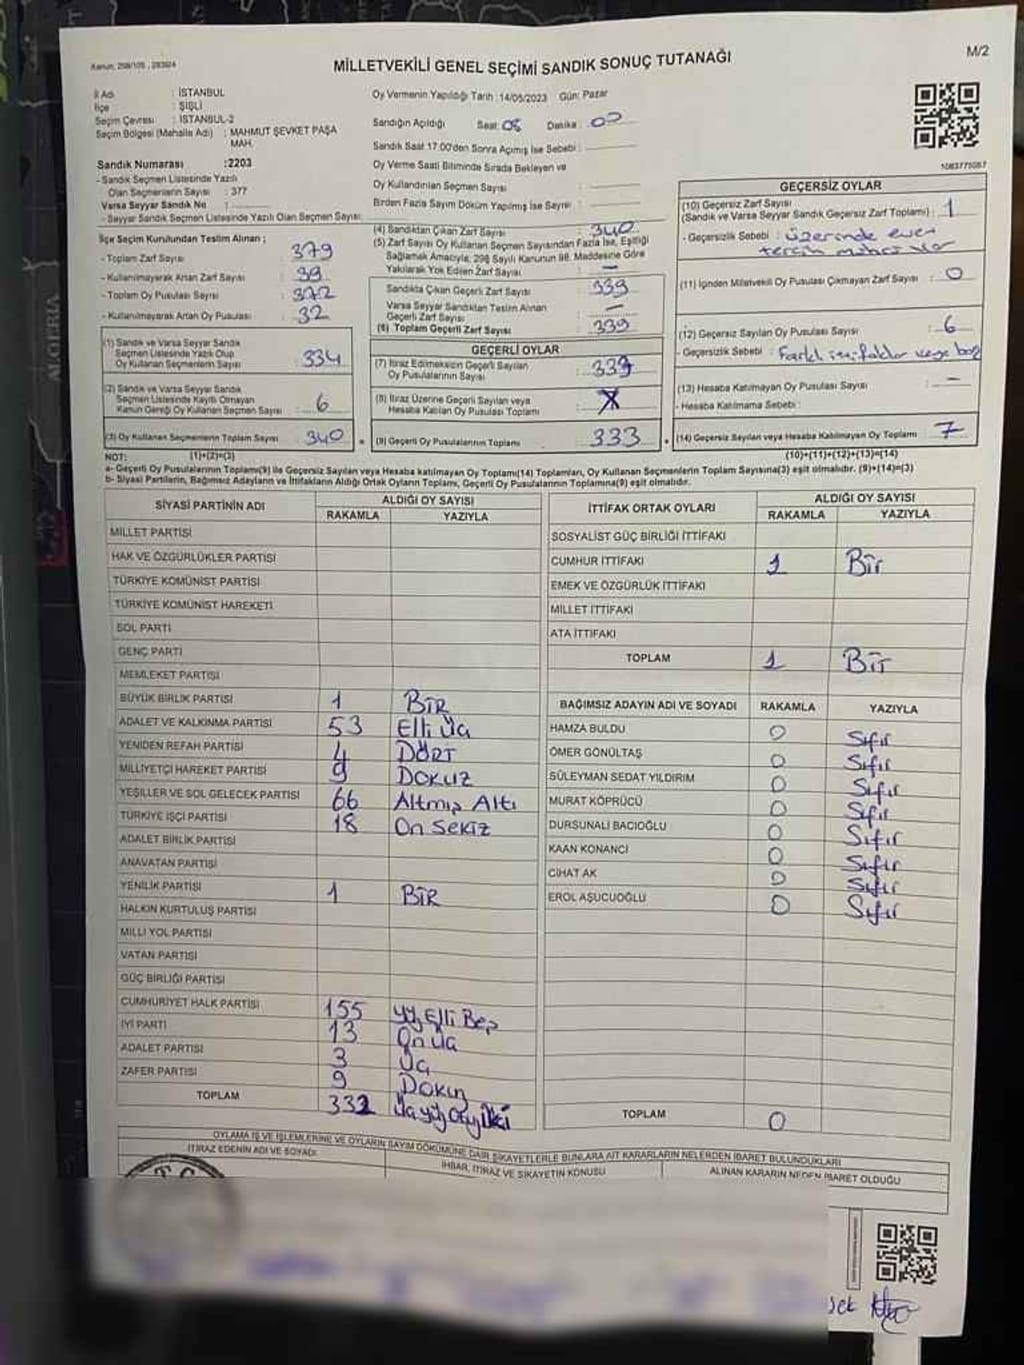 Kanun: 298/105, 2839/4
MİLLETVEKİLİ GENEL SEÇİMİ SANDIK SONUÇ TUTANAĞI
M/2
İl Adı : İSTANBUL
İlçe : ŞİŞLİ
Seçim Çevresi : İSTANBUL-2
Seçim Bölgesi (Mahalle Adı) : MAHMUT ŞEVKET PAŞA MAH.
Sandık Numarası : 2203
- Sandık Seçmen Listesinde Yazılı
Olan Seçmenlerin Sayısı : 377
Varsa Seyyar Sandık No :
- Seyyar Sandık Seçmen Listesinde Yazılı Olan Seçmen Sayısı:
Oy Vermenin Yapıldığı Tarih : 14/05/2023 Gün: Pazar
Sandığın Açıldığı Saat: 08 Dakika : 00
Sandık Saat 17.00'den Sonra Açılmış İse Sebebi :
Oy Verme Saati Bitiminde Sırada Bekleyen ve
Oy Kullandırılan Seçmen Sayısı :
Birden Fazla Sayım Döküm Yapılmış İse Sayısı :
1083775087
İlçe Seçim Kurulundan Teslim Alınan ;
- Toplam Zarf Sayısı : 379
- Kullanılmayarak Artan Zarf Sayısı : 39
- Toplam Oy Pusulası Sayısı : 372
- Kullanılmayarak Artan Oy Pusulası : 32
(1) Sandık ve Varsa Seyyar Sandık
Seçmen Listesinde Yazılı Olup
Oy Kullanan Seçmenlerin Sayısı : 334
(2) Sandık ve Varsa Seyyar Sandık
Seçmen Listesinde Kayıtlı Olmayan
Kanun Gereği Oy Kullanan Seçmen Sayısı : 6
(3) Oy Kullanan Seçmenlerin Toplam Sayısı : 340
(4) Sandıktan Çıkan Zarf Sayısı : 340
(5) Zarf Sayısı Oy Kullanan Seçmen Sayısından Fazla İse, Eşitliği
Sağlamak Amacıyla, 298 Sayılı Kanunun 98. Maddesine Göre
Yakılarak Yok Edilen Zarf Sayısı : –
Sandıkta Çıkan Geçerli Zarf Sayısı : 339
Varsa Seyyar Sandıktan Teslim Alınan
Geçerli Zarf Sayısı : –
(6) Toplam Geçerli Zarf Sayısı : 339
GEÇERLİ OYLAR
(7) İtiraz Edilmeksizin Geçerli Sayılan
Oy Pusulalarının Sayısı : 333
(8) İtiraz Üzerine Geçerli Sayılan veya
Hesaba Katılan Oy Pusulası Toplamı : X
(9) Geçerli Oy Pusulalarının Toplamı : 333
GEÇERSİZ OYLAR
(10) Geçersiz Zarf Sayısı
(Sandık ve Varsa Seyyar Sandık Geçersiz Zarf Toplamı) : 1
- Geçersizlik Sebebi : üzerinde evet
tercih mührü var
(11) İçinden Milletvekili Oy Pusulası Çıkmayan Zarf Sayısı : 0
(12) Geçersiz Sayılan Oy Pusulası Sayısı : 6
- Geçersizlik Sebebi : Farklı ittifaklar veya boş
(13) Hesaba Katılmayan Oy Pusulası Sayısı : –
- Hesaba Katılmama Sebebi :
(14) Geçersiz Sayılan veya Hesaba Katılmayan Oy Toplamı : 7
NOT: (1)+(2)=(3) (10)+(11)+(12)+(13)=(14)
a- Geçerli Oy Pusulalarının Toplamı(9) ile Geçersiz Sayılan veya Hesaba katılmayan Oy Toplamı(14) Toplamları, Oy Kullanan Seçmenlerin Toplam Sayısına(3) eşit olmalıdır. (9)+(14)=(3)
b- Siyasi Partilerin, Bağımsız Adayların ve İttifakların Aldığı Ortak Oyların Toplamı, Geçerli Oy Pusulalarının Toplamına(9) eşit olmalıdır.
SİYASİ PARTİNİN ADI ALDIĞI OY SAYISI
RAKAMLA YAZIYLA
MİLLET PARTİSİ
HAK VE ÖZGÜRLÜKLER PARTİSİ
TÜRKİYE KOMÜNİST PARTİSİ
TÜRKİYE KOMÜNİST HAREKETİ
SOL PARTİ
GENÇ PARTİ
MEMLEKET PARTİSİ
BÜYÜK BİRLİK PARTİSİ 1 BİR
ADALET VE KALKINMA PARTİSİ 53 Elli Üç
YENİDEN REFAH PARTİSİ 4 DÖRT
MİLLİYETÇİ HAREKET PARTİSİ 9 DOKUZ
YEŞİLLER VE SOL GELECEK PARTİSİ 66 Altmış Altı
TÜRKİYE İŞÇİ PARTİSİ 18 On Sekiz
ADALET BİRLİK PARTİSİ
ANAVATAN PARTİSİ
YENİLİK PARTİSİ 1 BİR
HALKIN KURTULUŞ PARTİSİ
MİLLİ YOL PARTİSİ
VATAN PARTİSİ
GÜÇ BİRLİĞİ PARTİSİ
CUMHURİYET HALK PARTİSİ 155 Yüz Elli Beş
İYİ PARTİ 13 On Üç
ADALET PARTİSİ 3 Üç
ZAFER PARTİSİ 9 Dokuz
TOPLAM 332 Üçyüz Otuz İki
İTTİFAK ORTAK OYLARI ALDIĞI OY SAYISI
RAKAMLA YAZIYLA
SOSYALİST GÜÇ BİRLİĞİ İTTİFAKI
CUMHUR İTTİFAKI 1 Bir
EMEK VE ÖZGÜRLÜK İTTİFAKI
MİLLET İTTİFAKI
ATA İTTİFAKI
TOPLAM 1 Bir
BAĞIMSIZ ADAYIN ADI VE SOYADI RAKAMLA YAZIYLA
HAMZA BULDU 0 Sıfır
ÖMER GÖNÜLTAŞ 0 Sıfır
SÜLEYMAN SEDAT YILDIRIM 0 Sıfır
MURAT KÖPRÜCÜ 0 Sıfır
DURSUNALİ BACIOĞLU 0 Sıfır
KAAN KONANCI 0 Sıfır
CİHAT AK 0 Sıfır
EROL AŞUCUOĞLU 0 Sıfır
TOPLAM 0
OYLAMA İŞ VE İŞLEMLERİNE VE OYLARIN SAYIM DÖKÜMÜNE DAİR ŞİKAYETLERLE BUNLARA AİT KARARLARIN NELERDEN İBARET BULUNDUKLARI
İTİRAZ EDENİN ADI VE SOYADI İHBAR, İTİRAZ VE ŞİKAYETİN KONUSU ALINAN KARARIN NEDEN İBARET OLDUĞU
T.C.
ALGERIA